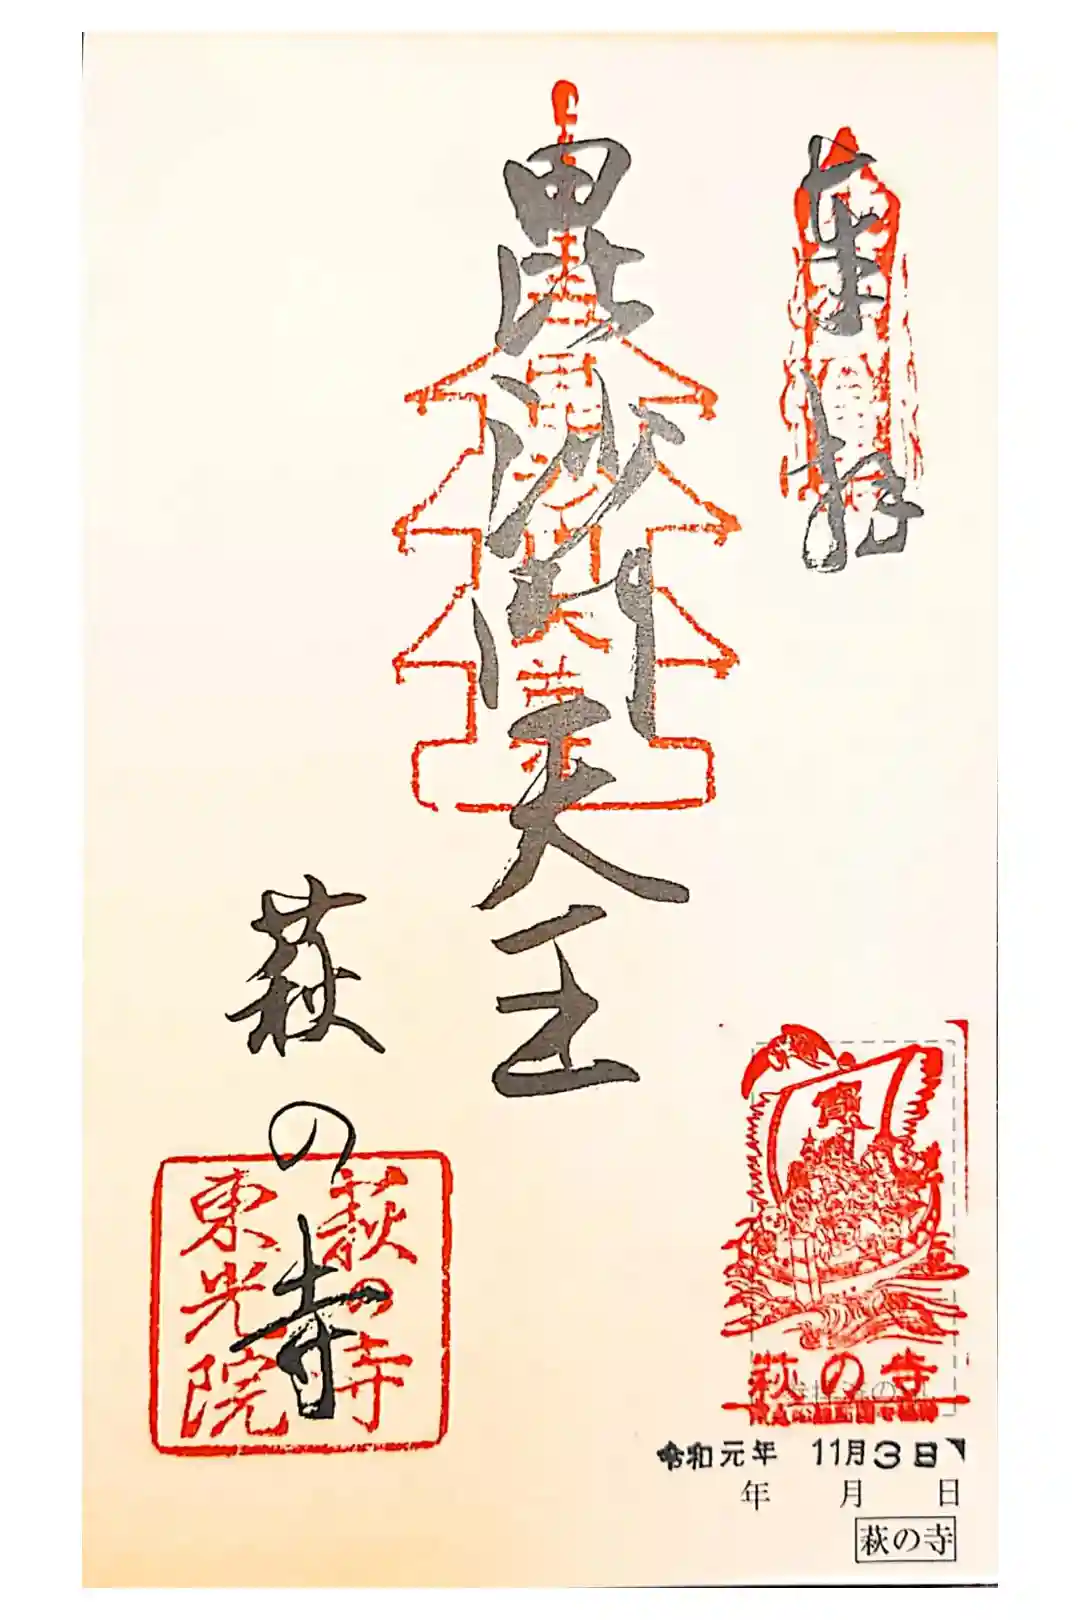 奉拝
毘沙門天王
萩の寺
萩の寺
東光院
寳
萩の寺
令和元年 11月3日
年 月 日
萩の寺